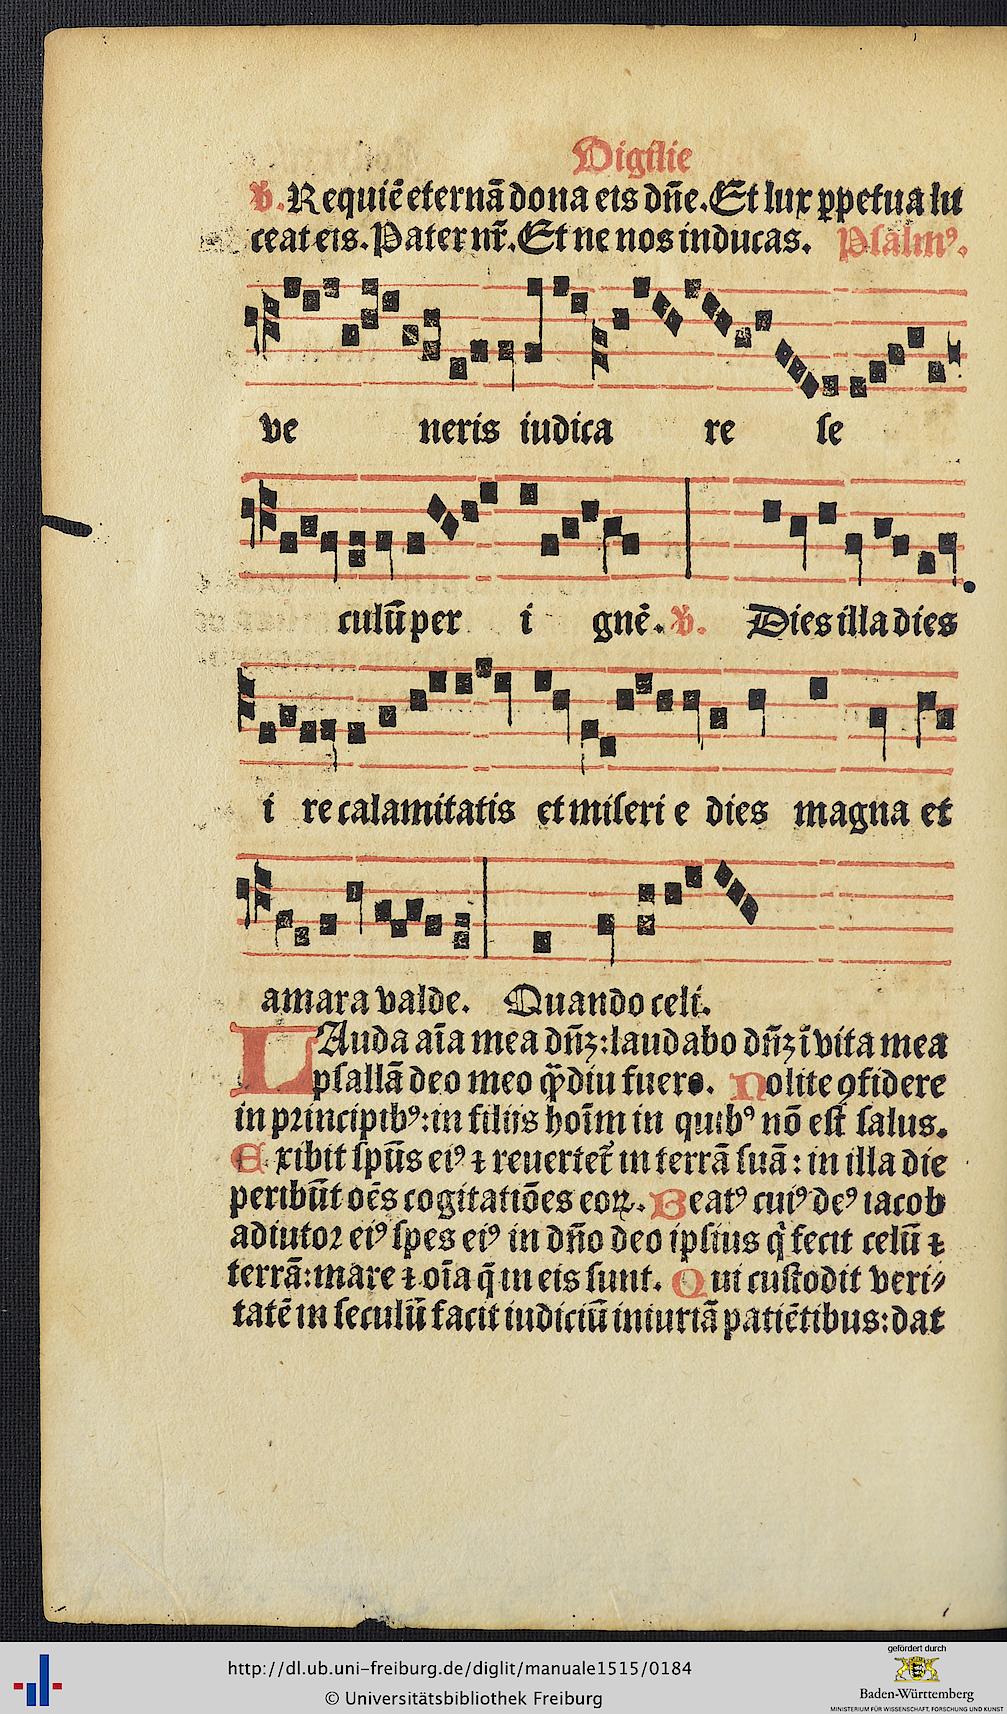 Vigilie
V. Requiē eternā dona eis dn̄e. Et lux ꝑpetua lu
ceat eis. Pater nr̄. Et ne nos inducas. Psalmꝰ.
ve neris iudica re se
culū per i gnē. V. Dies illa dies
i re calamitatis et miseri e dies magna et
amara valde. Quando celi.
LAuda aīa mea dn̄ꝫ: laudabo dn̄ꝫ ī vita mea
psallā deo meo ꝙ̄diu fuero. Nolite ꝯfidere
in principibꝰ: in filijs hoīm in quibꝰ nō est salus.
Exibit spūs eiꝰ ⁊ reuertet᷑ in terrā suā: in illa die
peribūt oēs cogitatiōes eoꝝ. Beatꝰ cuiꝰ deꝰ iacob
adiutor eiꝰ spes eiꝰ in dn̄o deo ipsius qͥ fecit celū ⁊
terrā: mare ⁊ oīa q̄ in eis sunt. Qui custodit veri⸗
tatē in seculū facit iudiciū iniuriā patiētibus: dat
http://dl.ub.uni-freiburg.de/diglit/manuale1515/0184
© Universitätsbibliothek Freiburg
gefördert durch
Baden-Württemberg
MINISTERIUM FÜR WISSENSCHAFT, FORSCHUNG UND KUNST